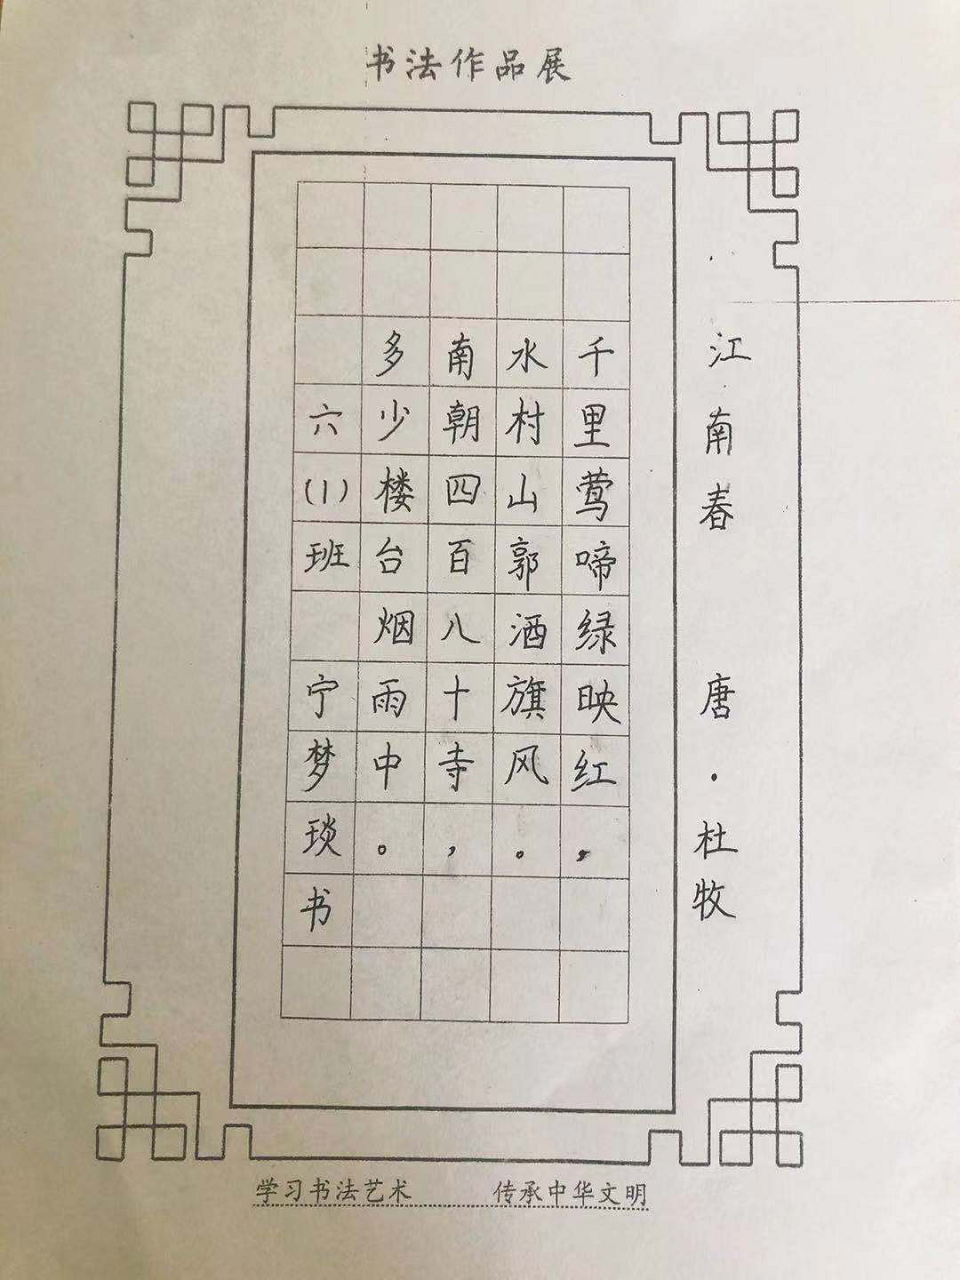 书法作品展
江南春 唐·杜牧
千里莺啼绿映红，
水村山郭酒旗风。
南朝四百八十寺，
多少楼台烟雨中。
六(1)班 宁梦琰书
学习书法艺术 传承中华文明